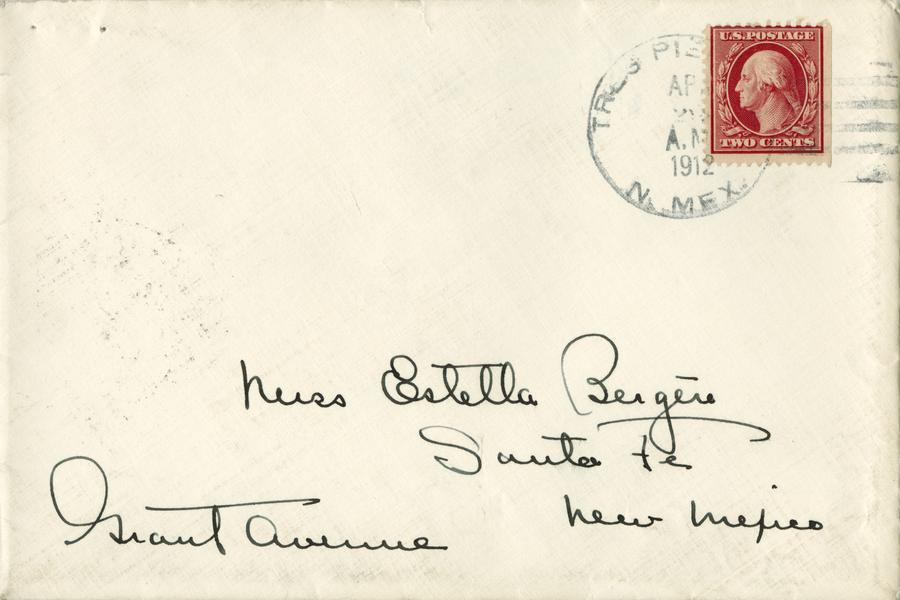 U.S. POSTAGE
TWO CENTS
TRES PIE
AP
A.M
1912
N. MEX.
Miss Estella Bergere
Santa Fe
New Mexico
Grant Avenue